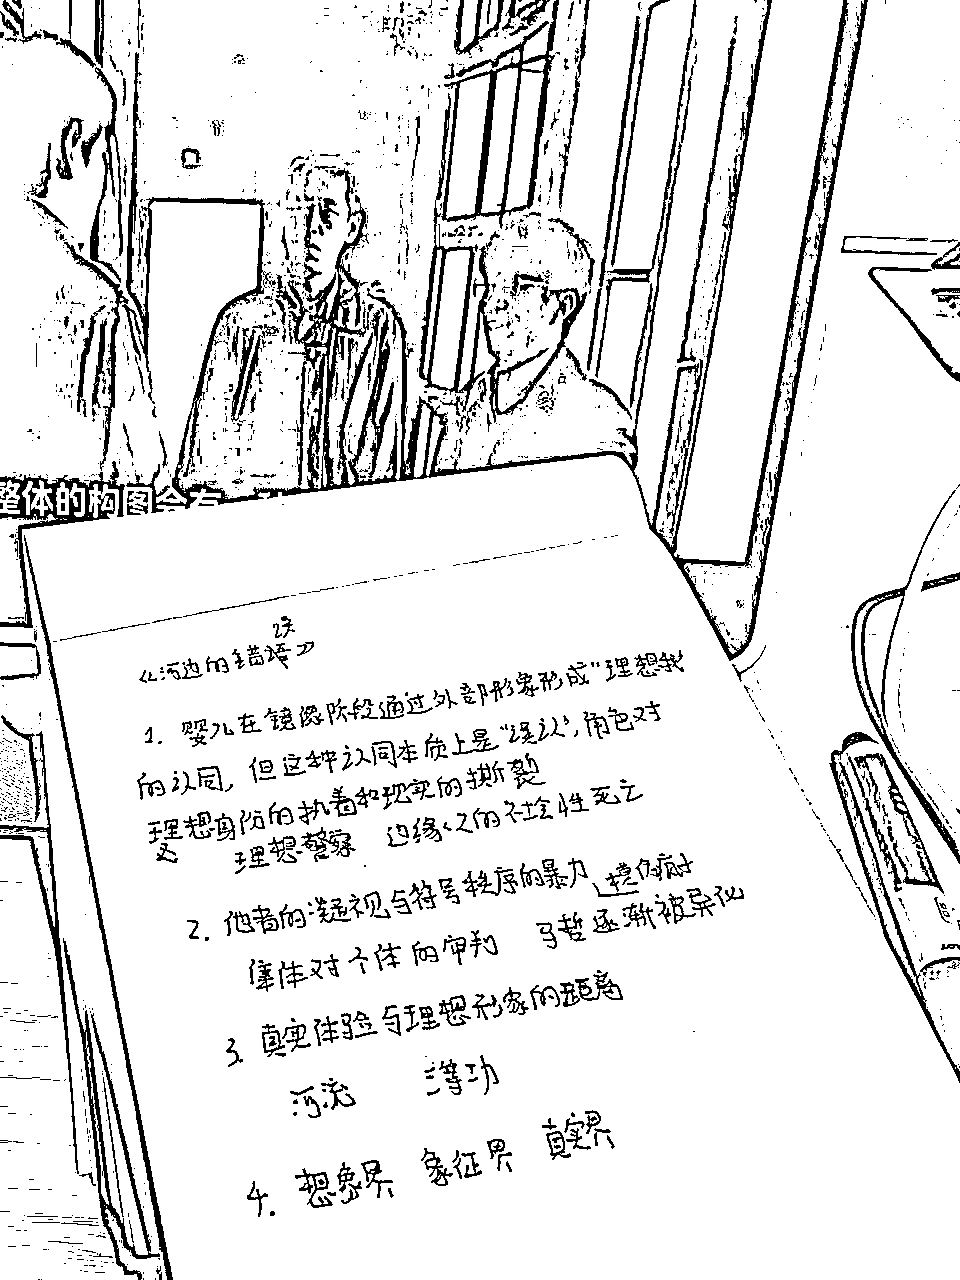 整体的构图会有
误
《河边的错误》
1. 婴儿在镜像阶段通过外部形象形成"理想我
的认同，但这种认同本质上是"误认"，角色对
理想身份的执着和现实的撕裂
理想警察 边缘人的不检性死亡
2. 他者的凝视与符号秩序的暴力 模仿疯子
集体对个体的审判 马哲逐渐被异化
3. 真实体验与理想形象的距离
河流 三等功
4. 想象界 象征界 真实界